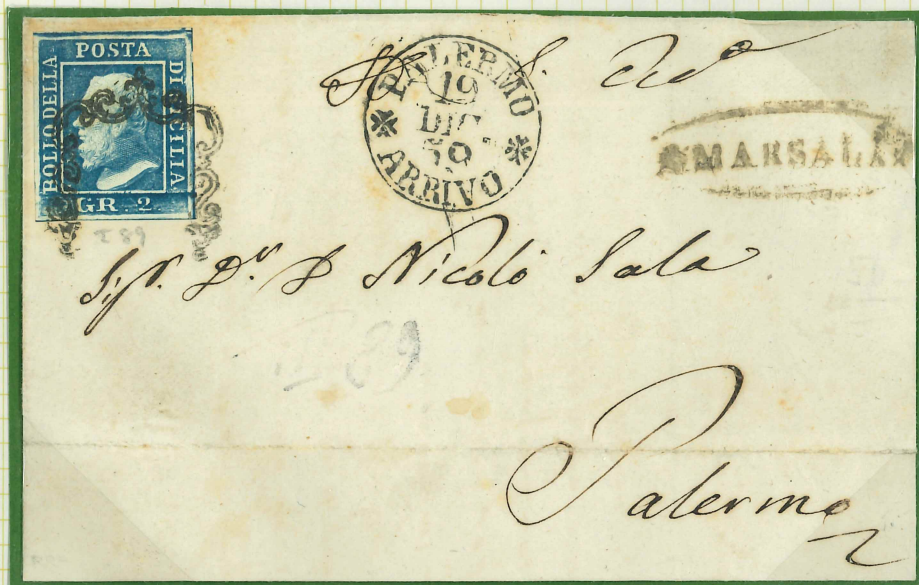 POSTA
BOLLO DELLA
DI SICILIA
GR. 2
PALERMO
19
DIC
59
ARRIVO
MARSALA
I 89
Sigr. Dn. D Nicolò Sala
II 89
Palermo